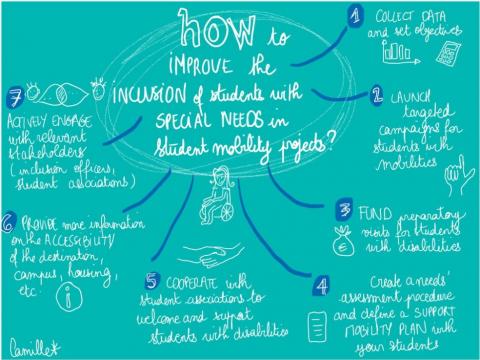 HOW to
IMPROVE the
INCLUSION of students with
SPECIAL NEEDS in
student mobility projects?
1 COLLECT DATA
and set objectives
2 LAUNCH
targeted
campaigns for
students with
mobilities
3 FUND preparatory
visits for students
with disabilities
€
4 Create a needs'
assessment procedure
and define a SUPPORT
MOBILITY PLAN with
your students
5 COOPERATE with
student associations to
welcome and support
students with disabilities
6 PROVIDE more information
on the ACCESSIBILITY
of the destination,
campus, housing,
etc.
i
7
ACTIVELY ENGAGE
with relevant
stakeholders
(inclusion officers,
student associations)
Camille*